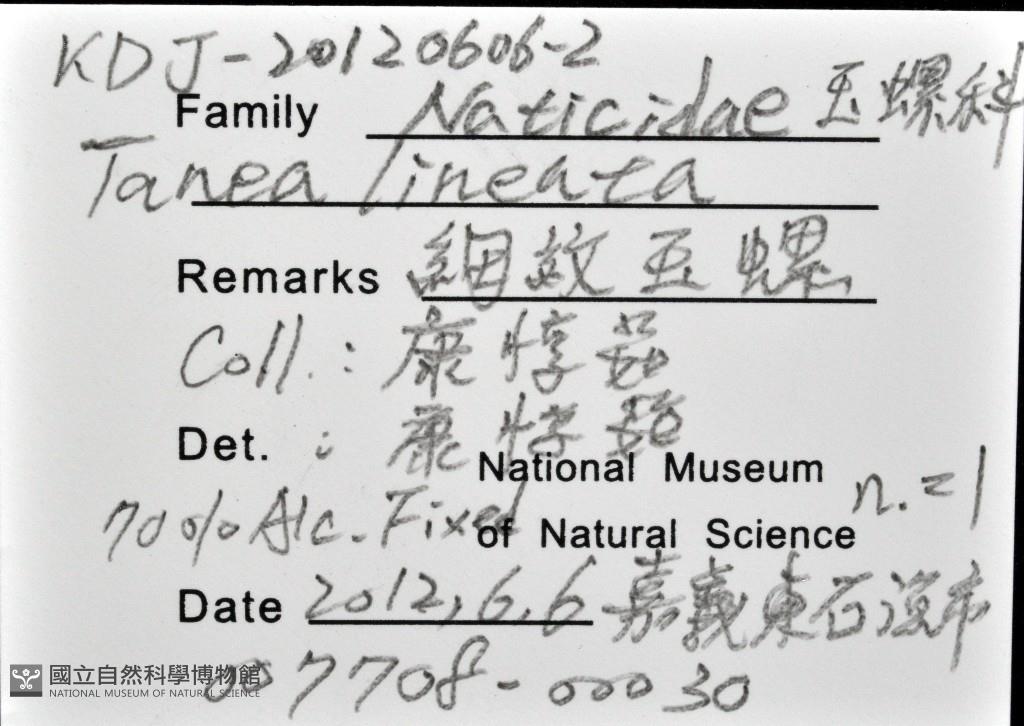 KDJ-20120606-2
Family Naticidae 玉螺科
Tanea lineata
Remarks 細紋玉螺
Coll. : 康惇
Det. : 康惇
National Museum
n.=1
70% Alc. Fixed of Natural Science
Date 2012,6,6 嘉義東石漁市
007708-00030
國立自然科學博物館
NATIONAL MUSEUM OF NATURAL SCIENCE